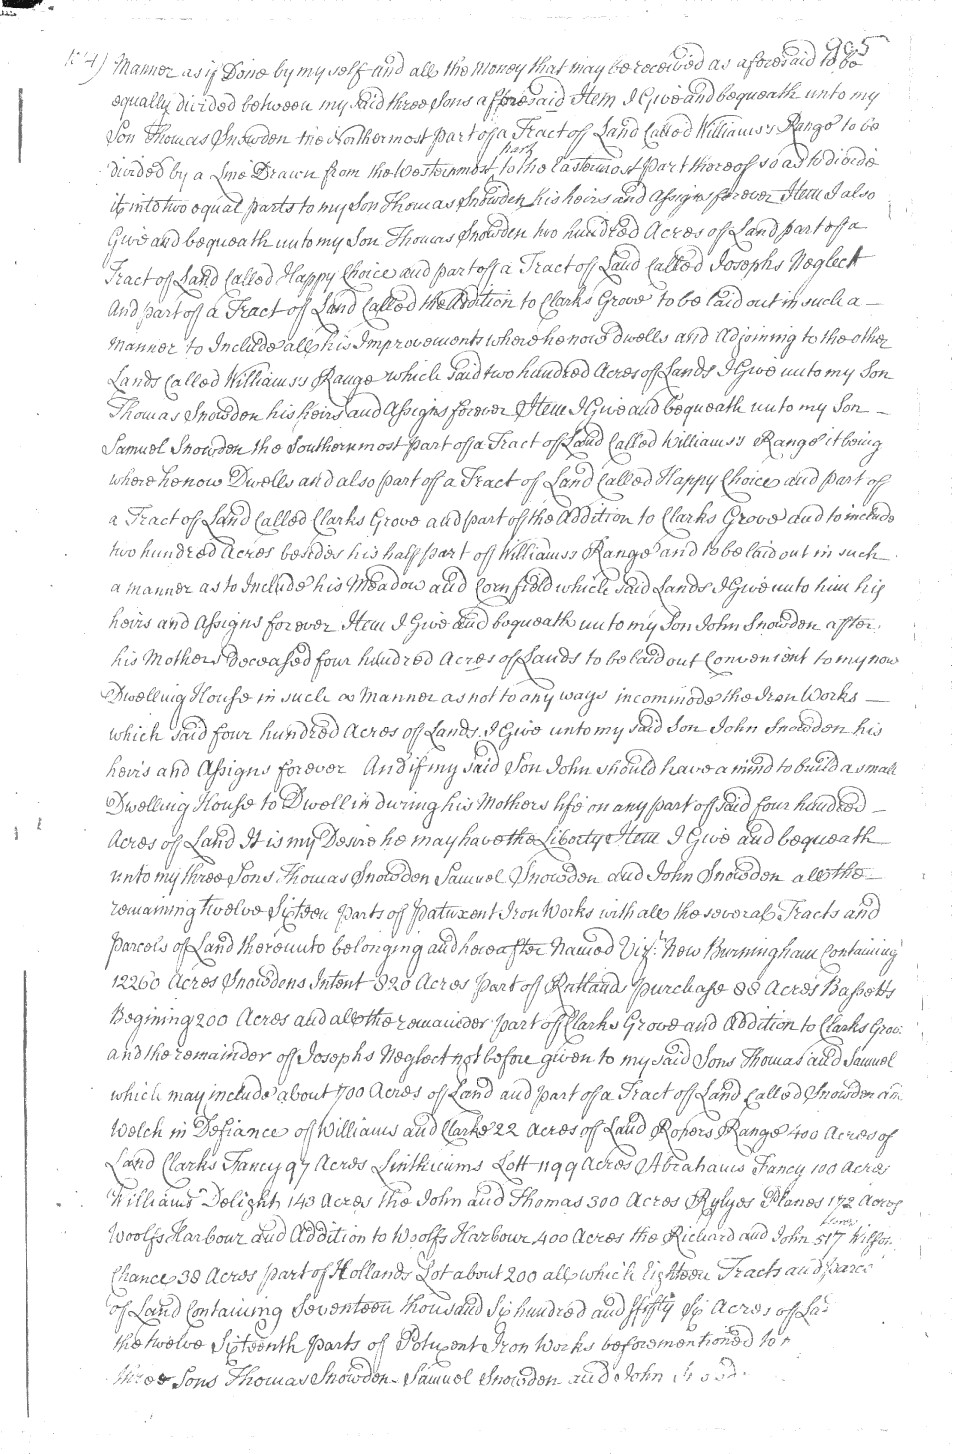 905
Manner as if Done by my self and all the Money that may be received as aforesaid to be
equally divided between my said three Sons afforesaid Item I Give and bequeath unto my
Son Thomas Snowden the Northermost part of a Tract of Land Called Williams's Range to be
divided by a Line Drawn from the Westernmost to the Easternmost part thereof so as to divide
it into two equal parts to my Son Thomas Snowden his heirs and Assigns forever Item I also
Give and bequeath unto my Son Thomas Snowden two hundred Acres of Land part of a
Tract of Land Called Happy Choice and part of a Tract of Land Called Josephs Neglect
And part of a Tract of Land Called the Addition to Clarks Grove to be laid out in such a –
Manner to Include all his Improvements where he now Dwells and Adjoining to the other
Lands Called Williams's Range which said two hundred Acres of Lands I Give unto my Son
Thomas Snowden his heirs and Assigns forever Item I Give and bequeath unto my Son –
Samuel Snowden the Southernmost part of a Tract of Land Called Williams's Range it being
where he now Dwells and also part of a Tract of Land Called Happy Choice and part of
a Tract of Land Called Clarks Grove and part off the Addition to Clarks Grove and to include
two hundred Acres besides his half part off Williams's Range and to be laid out in such
a manner as to Include his Meadow and Cornfield which said Lands I Give unto him his
heirs and Assigns forever Item I Give and bequeath unto my Son John Snowden after
his Mothers Deceased four hundred Acres of Lands to be laid out Convenient to my now
Dwelling House in such a Manner as not to any ways incommode the Iron Works –
which said four hundred Acres of Lands I Give unto my said Son John Snowden his
heirs and Assigns forever And if my said Son John should have a mind to build a small
Dwelling House to Dwell in during his Mothers life on any part off said four hundred –
Acres of Land It is my Desire he may have the Liberty Item I Give and bequeath
unto my three Sons Thomas Snowden Samuel Snowden and John Snowden all the –
remaining twelve Sixteen parts of Patuxent Iron Works with all the several Tracts and
parcels of Land thereunto belonging and hereafter Named Viz: New Burmingham Containing
12260 Acres Snowdens Intent 820 Acres part of Rutlands purchase 88 Acres Bassetts
Begining 200 Acres and all the remainder part off Clarks Grove and Addition to Clarks Grov
and the remainder off Josephs Neglect not before given to my said Sons Thomas and Samuel
which may include about 700 Acres of Land and part of a Tract of Land Called Snowden an
Welch in Defiance of Williams and Clarke 22 Acres of Land Ropers Range 400 Acres of
Land Clarks Fancy 97 Acres Linthicums Lott 1199 Acres Abrahams Fancy 100 Acres
Williams Delight 143 Acres the John and Thomas 300 Acres Rylyes Planes 172 Acres
Woolfs Harbour and Addition to Woolfs Harbour 400 Acres the Richard and John 517
Chance 38 Acres part of Hollands Lot about 200 all which Eighteen Tracts and parce
of Land Containing Seventeen thousand Six hundred and ffifty Six Acres of La
the twelve Sixteenth parts of Potuxent Iron Works beforementioned to
three Sons Thomas Snowden Samuel Snowden and John